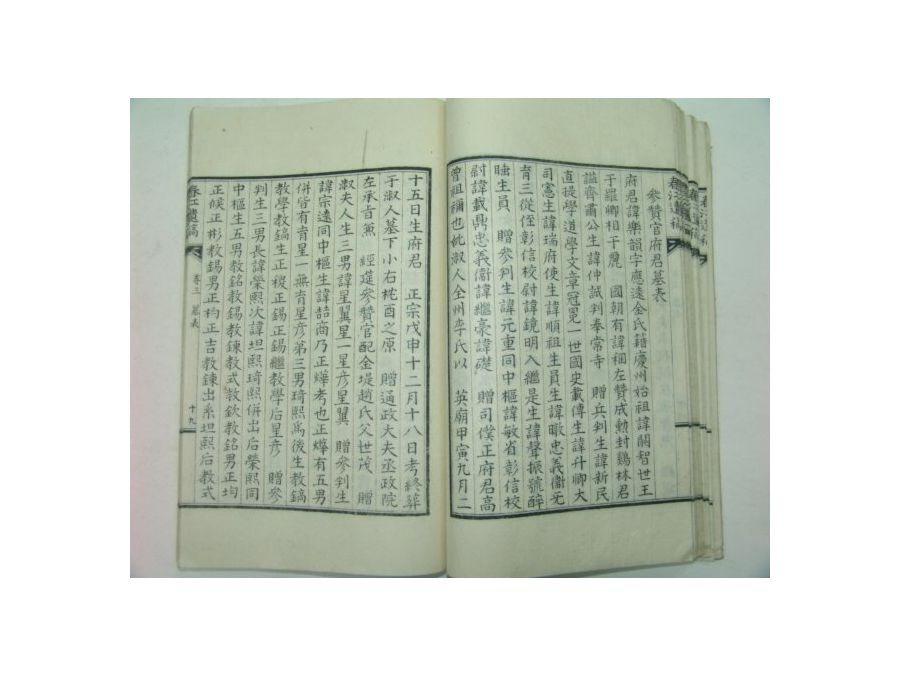 參贊官府君墓表
府君諱樂韻字應遠金氏籍慶州始祖諱閼智世王
于羅卿相于麗 國朝有諱稛左贊成勳封鷄林君
諡齊肅公生諱仲誠判奉常寺 贈兵判生諱新民
直提學道學文章冠冕一世國史載傳生諱升卿大
司憲生諱瑞府使生諱順祖生員生諱暾忠義衞无
育三從侄彰信校尉諱鏡明入繼是生諱聲振號醉
睡生員 贈參判生諱元重同中樞諱敏省彰信校
尉諱載鼎忠義衞諱繼豪諱礎 贈司僕正府君高
曾祖禰也妣淑人全州李氏以 英廟甲寅九月二
十五日生府君 正宗戊申十二月十八日考終葬
于淑人墓下小右枕酉之原 贈通政大夫丞政院
左承旨兼 經筵參贊官配金堤趙氏父世茂 贈
淑夫人生三男諱星翼星一星彦星翼 贈參判生
諱宗遠同中樞生諱喆商乃正燁考也正燁有五男
併皆有育星一無育星彦第三男琦熙爲後生教鎬
教學教鎬生正稷正錫正錫繼教學后星彦 贈參
判生三男長諱榮熙次諱坦熙琦熙併出后榮熙同
中樞生五男教銘教錫教鍊教式教欽教銘男正均
正候正彬教錫男正枃正吉教鍊出系坦熙后教式
春江遺稿
卷三 墓表
十九